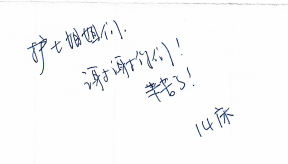 护士姐姐们,
谢谢你们!
辛苦了!
14床